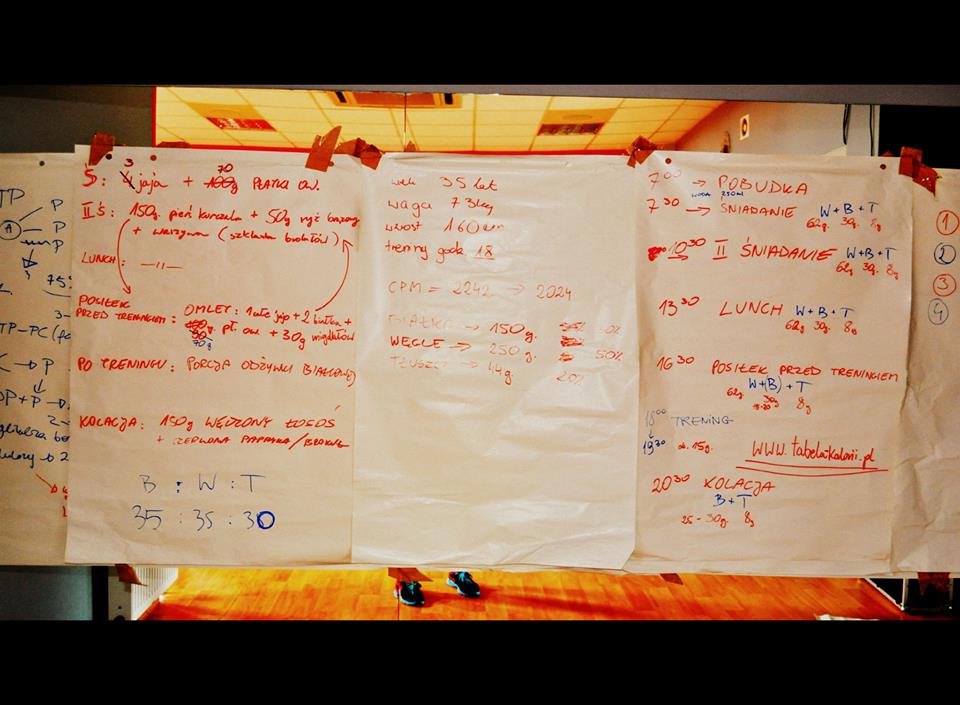 TP
A
P
P
P
75%
3-
TP-PC
→ P
P+P →
2-
→ 2
3 70
Ś: 4 jaja + 100g PŁATKI OW.
II Ś: 150g. pierś kurczaka + 50g ryż brązowy
+ warzywa (szklanka brokułów)
LUNCH: —ıı—
POSIŁEK
PRZED TRENINGIEM: OMLET: 1 całe jajo + 2 białka +
pł. ow. + 30g migdałów
70g
PO TRENINGU: PORCJA ODŻYWKI BIAŁKOWEJ
KOLACJA: 150g WĘDZONY ŁOSOŚ
+ CZERWONA PAPRYKA/BROKUŁ
B : W : T
35 : 35 : 30
wiek 35 lat
waga 73kg
wzrost 160cm
trening godz. 18
CPM = 2242 → 2024
BIAŁKA → 150g. 30%
WĘGLE → 250g. 50%
TŁUSZCZ → 44g. 20%
7 00 → POBUDKA
WODA 250ml
7 30 → ŚNIADANIE W+B+T
62g. 30g. 8g
10 30 II ŚNIADANIE W+B+T
62g 30g. 8g
13 30 LUNCH W+B+T
62g. 30g. 8g
16 30 POSIŁEK PRZED TRENINGIEM
W+(B)+T
62g. 30g. 8g
15-20
18 00 TRENING
↓
19 30 ok. 15g.
www.tabelakalorii.pl
20 30 KOLACJA
B+T
25-30g. 8g
1
2
3
4